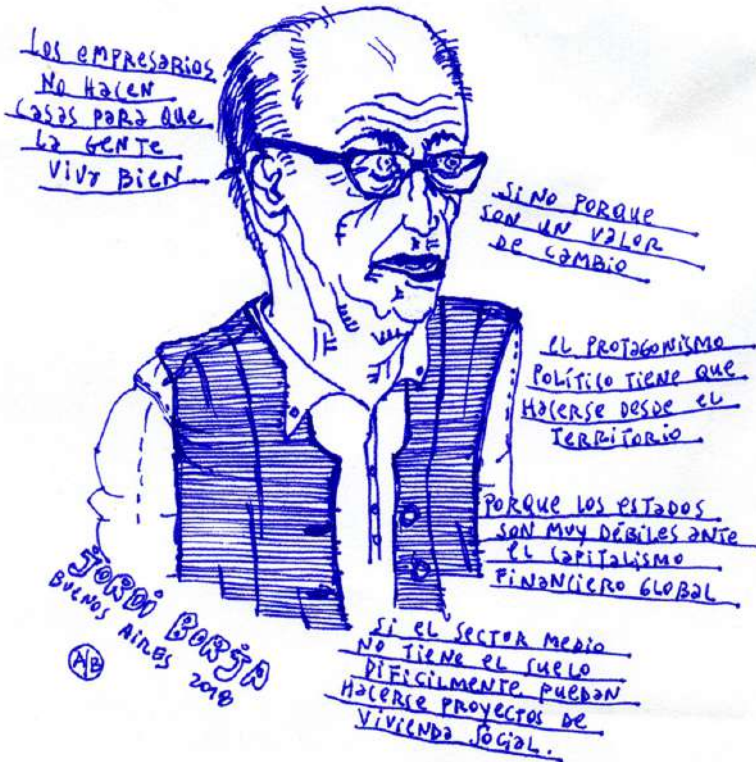 LOS EMPRESARIOS
NO HACEN
CASAS PARA QUE
LA GENTE
VIVA BIEN
SI NO PORQUE
SON UN VALOR
DE CAMBIO
EL PROTAGONISMO
POLÍTICO TIENE QUE
HACERSE DESDE EL
TERRITORIO
PORQUE LOS ESTADOS
SON MUY DÉBILES ANTE
EL CAPITALISMO
FINANCIERO GLOBAL
SI EL SECTOR MEDIO
NO TIENE EL SUELO
DIFICILMENTE PUEDAN
HACERSE PROYECTOS DE
VIVIENDA SOCIAL.
JORDI BORJA
BUENOS AIRES 2018
A/B